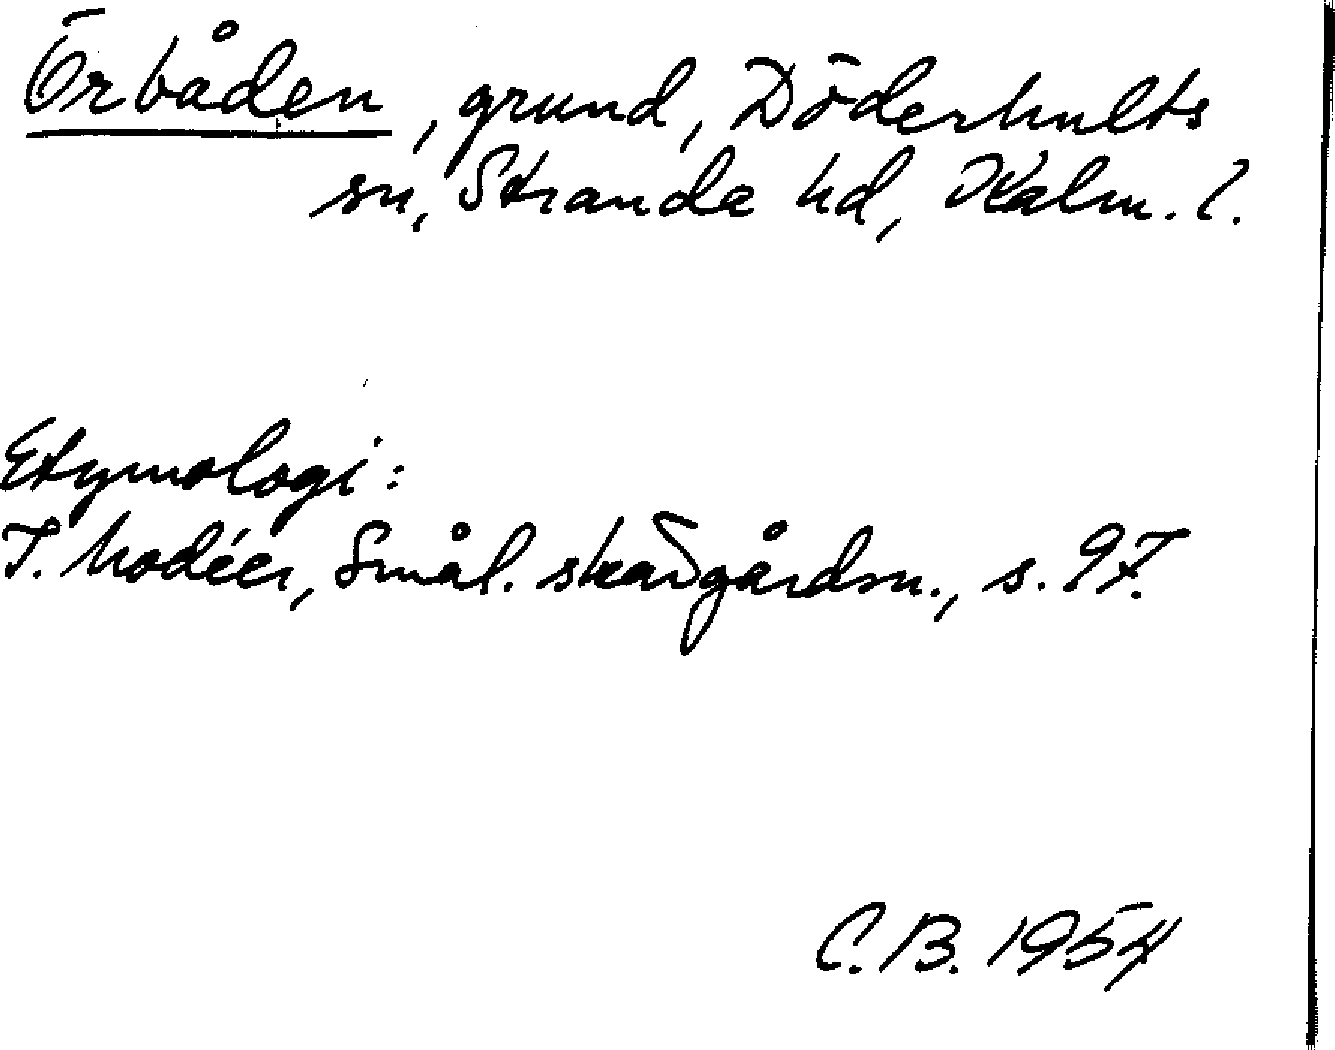 Örbåden, grund, Döderhults
sn, Stranda hd, Kalm. l.
Etymologi:
I. Modéer, Smål. skärgårdsn., s. 97.
C.B. 1954